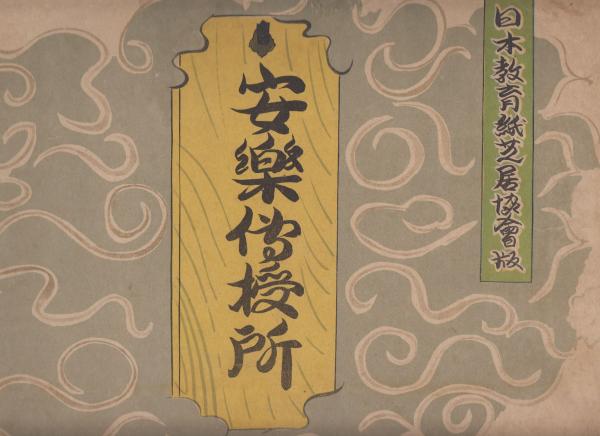 日本教育紙芝居協會版
安樂傳授所